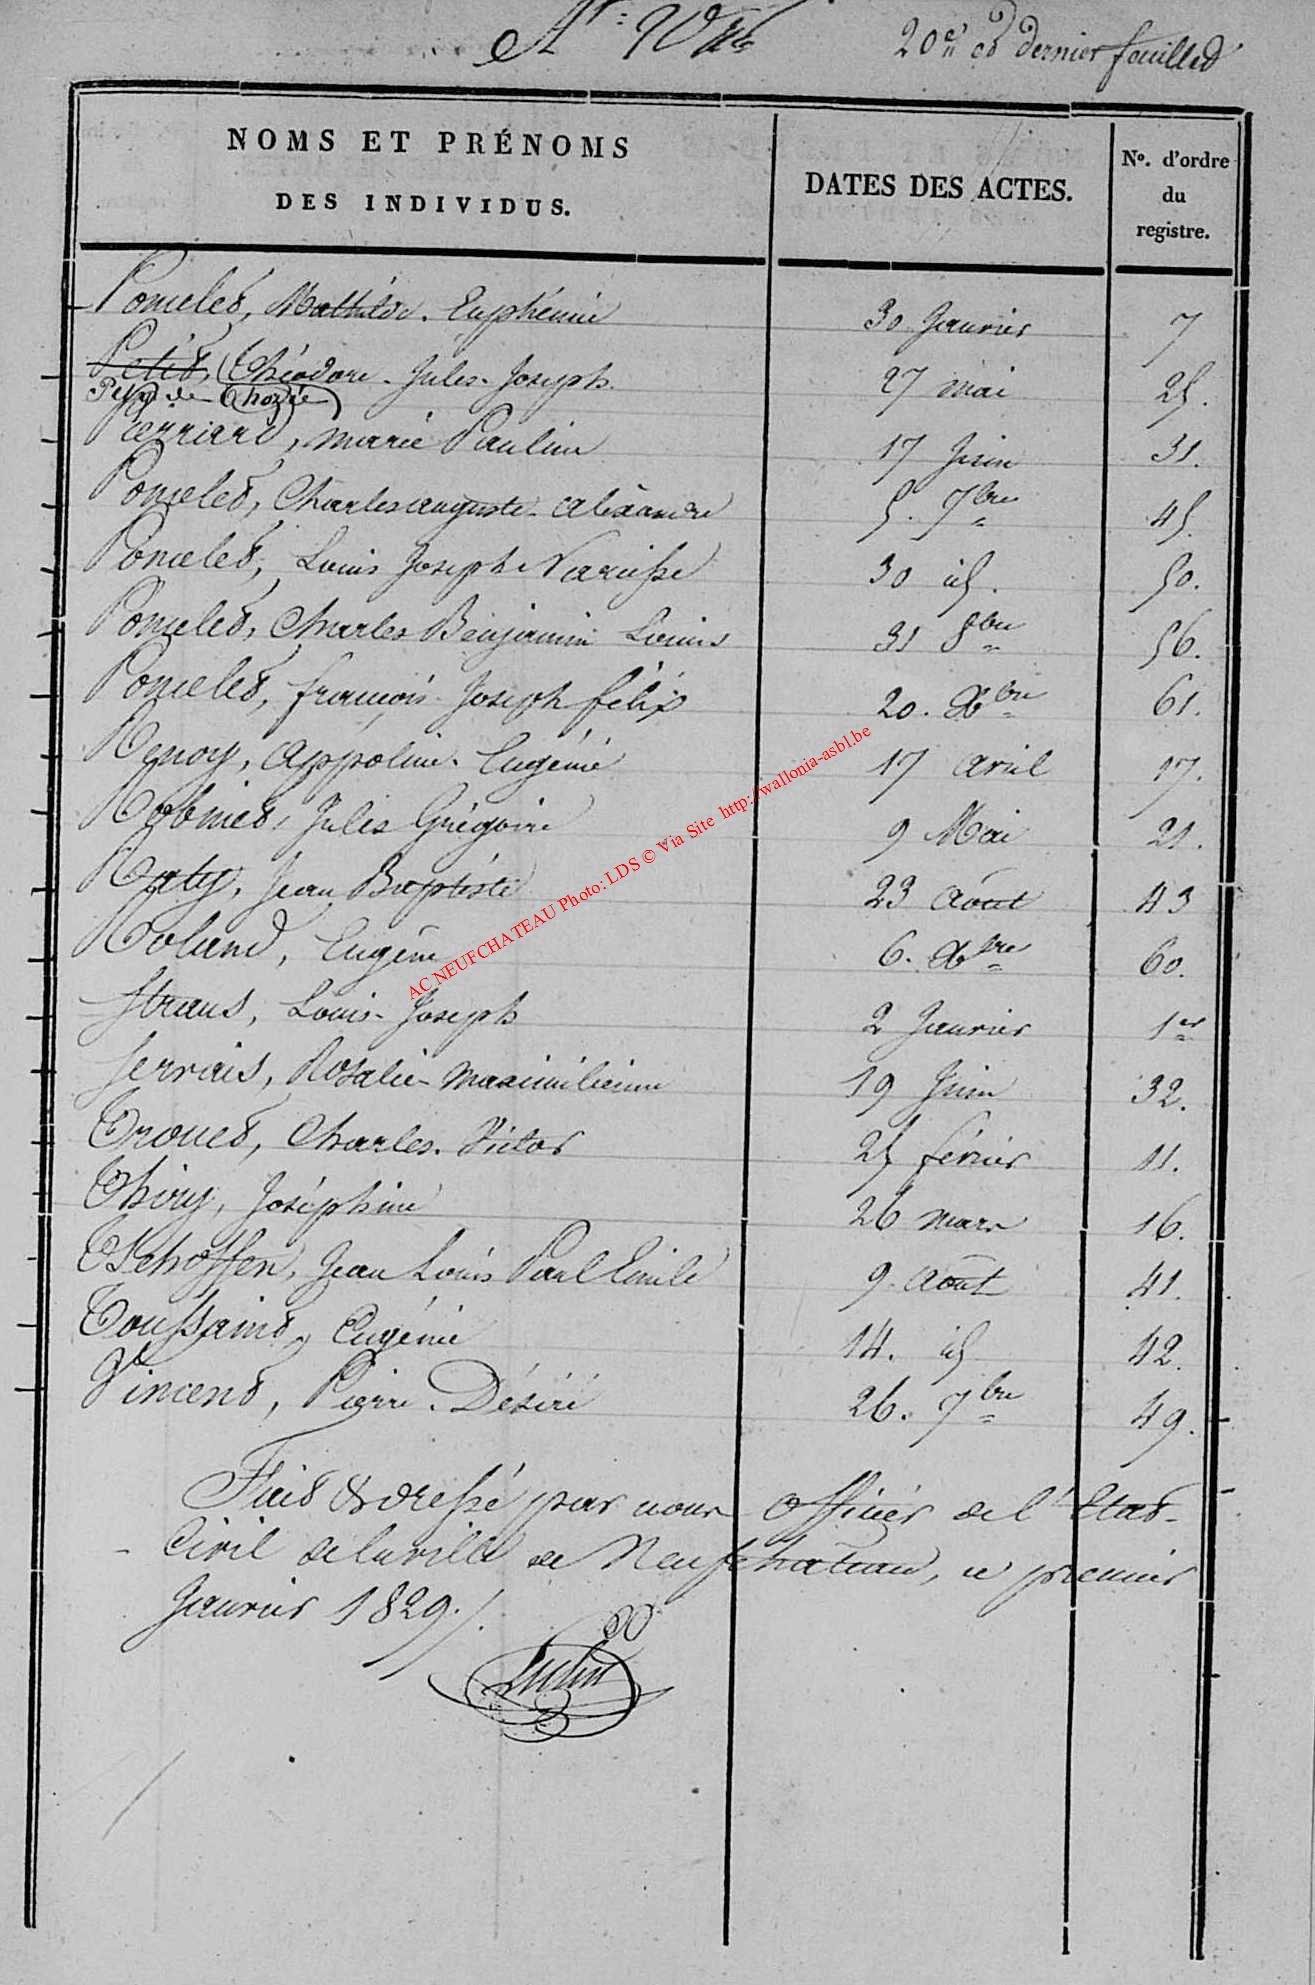 20e et dernier feuillet
NOMS ET PRÉNOMS
DES INDIVIDUS.
DATES DES ACTES.
No. d'ordre
du
registre.
Poncelet, Mathilde. Euphémie 30 Janvier 7
Petit, Théodore. Jules. Joseph. 27 mai 25.
de Thozée
Pierrard, marie Pauline 17 Juin 31.
Poncelet, Charles auguste. alexandre 5. 7bre 45.
Poncelet, Louis Joseph Narcisse 30 id. 50.
Poncelet, Charles Benjamin Louis 31 8bre 56.
Poncelet, françois Joseph félix 20. Xbre 61.
Renoy, Appoline. Eugénie 17 avril 17.
Robinet, Jules Grégoire 9 Mai 21.
Raty, Jean Baptiste 23 août 43
Roland, Eugène 6. Xbre 60.
Straus, Louis. Joseph 2 Janvier 1er
Servais, Rosalie-maximilienne 19 Juin 32.
Trouet, Charles. Victor 25 février 11.
Thiry, Joséphine 26 mars 16.
Tschoffen, Jean Louis Paul Emile 9. août 41.
Toussaint, Eugénie 14. id 42.
Vincent, Pierre. Désiré 26. 7bre 49.
Fait & dressé par nous officier de l'Etat-
Civil de la ville de Neufchateau, ce premier
Janvier 1829./.
AC NEUFCHATEAU Photo: LDS © Via Site http://wallonia-asbl.be